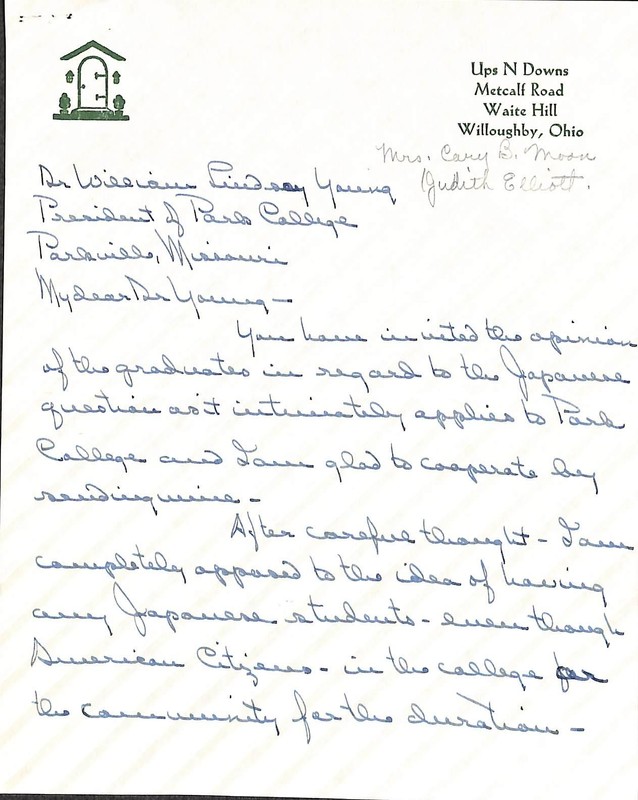 Ups N Downs
Metcalf Road
Waite Hill
Willoughby, Ohio
Mrs. Cary B. Moon
Judith Elliott.
Dr William Lindsay Young
President of Park College
Parkville, Missouri
My dear Dr Young —
You have invited the opinion
of the graduates in regard to the Japanese
question as it intimately applies to Park
College and I am glad to cooperate by
sending mine -
After careful thought - I am
completely opposed to the idea of having
any Japanese students - even though
American Citizens - in the college or
the community for the duration -